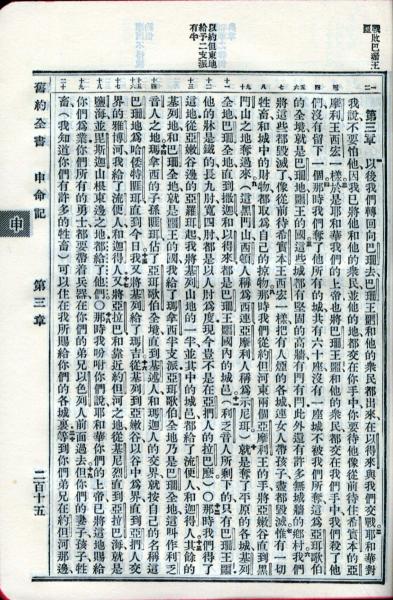 戰敗巴珊王噩
以約但東地給予二支派有半
第三章 以後我們轉回向巴珊去巴珊王噩和他的衆民都出來在以得來與我們交戰耶和華對
我說不要怕他因我已將他和他的衆民並他的地都交在你手中你要待他像從前待住希實本的亞
摩利王西宏一樣於是耶和華我們的上帝也將巴珊王噩和他的衆民都交在我們手中我們殺了他
們沒有留下一個那時我們奪了他所有的城共有六十座沒有一座城不被我們所奪這爲亞珥歌伯
的全境就是巴珊地噩王的國這些城都有堅固的高牆有門有閂此外還有許多無城牆的鄉村我們
將這些都毀滅了像從前待希實本王西宏一樣把有人煙的各城連女人帶孩子盡都毀滅惟有一切
牲畜和城中的財物都取爲自己的掠物那時我們從約但河東兩個亞摩利王的手將亞嫩谷直到黑
門山之地奪過來(這黑門山西頓人稱爲西連亞摩利人稱爲示尼珥)就是奪了平原的各城基列
全地巴珊全地直到撒迦和以得來都是巴珊王噩國內的城邑(利乏音人所剩下的只有巴珊王噩
他的牀是鐵的長九肘寬四肘都是以人肘爲度現今豈不是在亞捫人的拉巴麽)〇那時我們得了
這地從亞嫩谷邊的亞羅珥起我將基列山地的一半並其中的城邑都給了流便人和迦得人其餘的
基列地和巴珊全地就是噩王的國我給了瑪拿西半支派亞珥歌伯全地乃是巴珊全地這叫作利乏
音人之地瑪拿西的子孫睚珥佔了亞珥歌伯全境直到基述人和瑪迦人的交界就按自己的名稱這
巴珊地爲哈倭特睚珥直到今日我又將基列給了瑪吉從基列到亞嫩谷以谷中爲界直到亞捫人交
界的雅博河我給了流便人和迦得人又將亞拉巴和靠近約但河之地從基尼烈直到亞拉巴海就是
鹽海並毘斯迦山根東邊之地都給了他們〇那時我吩咐你們說耶和華你們的上帝已將這地賜給
你們爲業你們所有的勇士都要帶着兵器在你們的弟兄以色列人前面過去但你們的妻子孩子牲
畜(我知道你們有許多的牲畜)可以住在我所賜給你們的各城裏等到你們弟兄在約但河那邊
舊約全書 申命記 第三章 二百十五
申